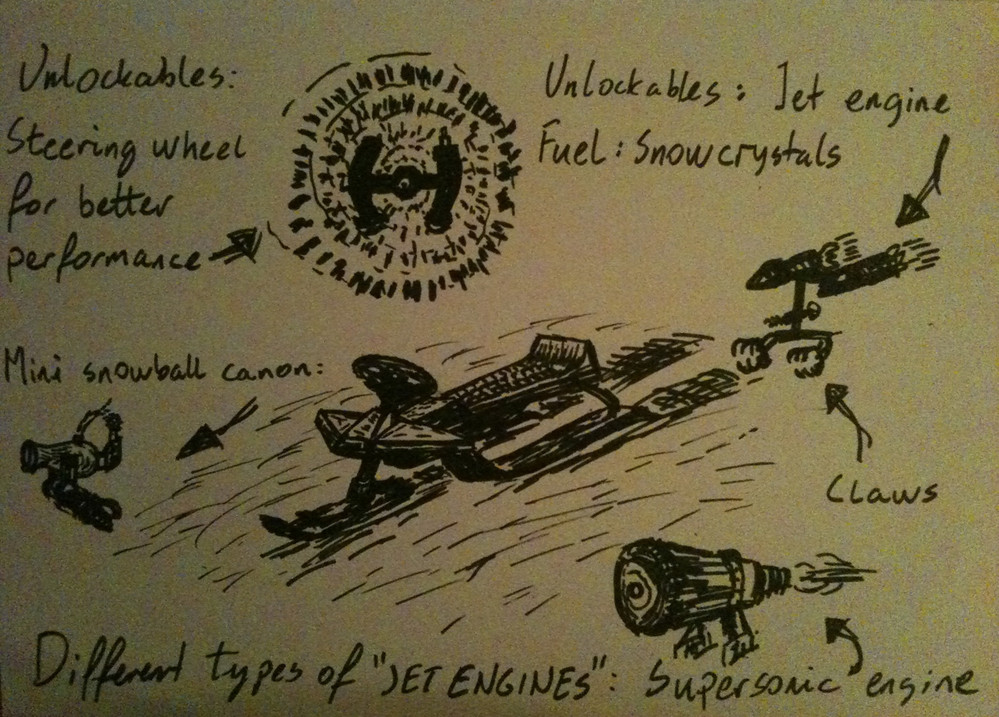 Unlockables:
Steering wheel
for better
performance
Unlockables: Jet engine
Fuel: Snowcrystals
Mini snowball canon:
Claws
Different types of "JET ENGINES": Supersonic engine